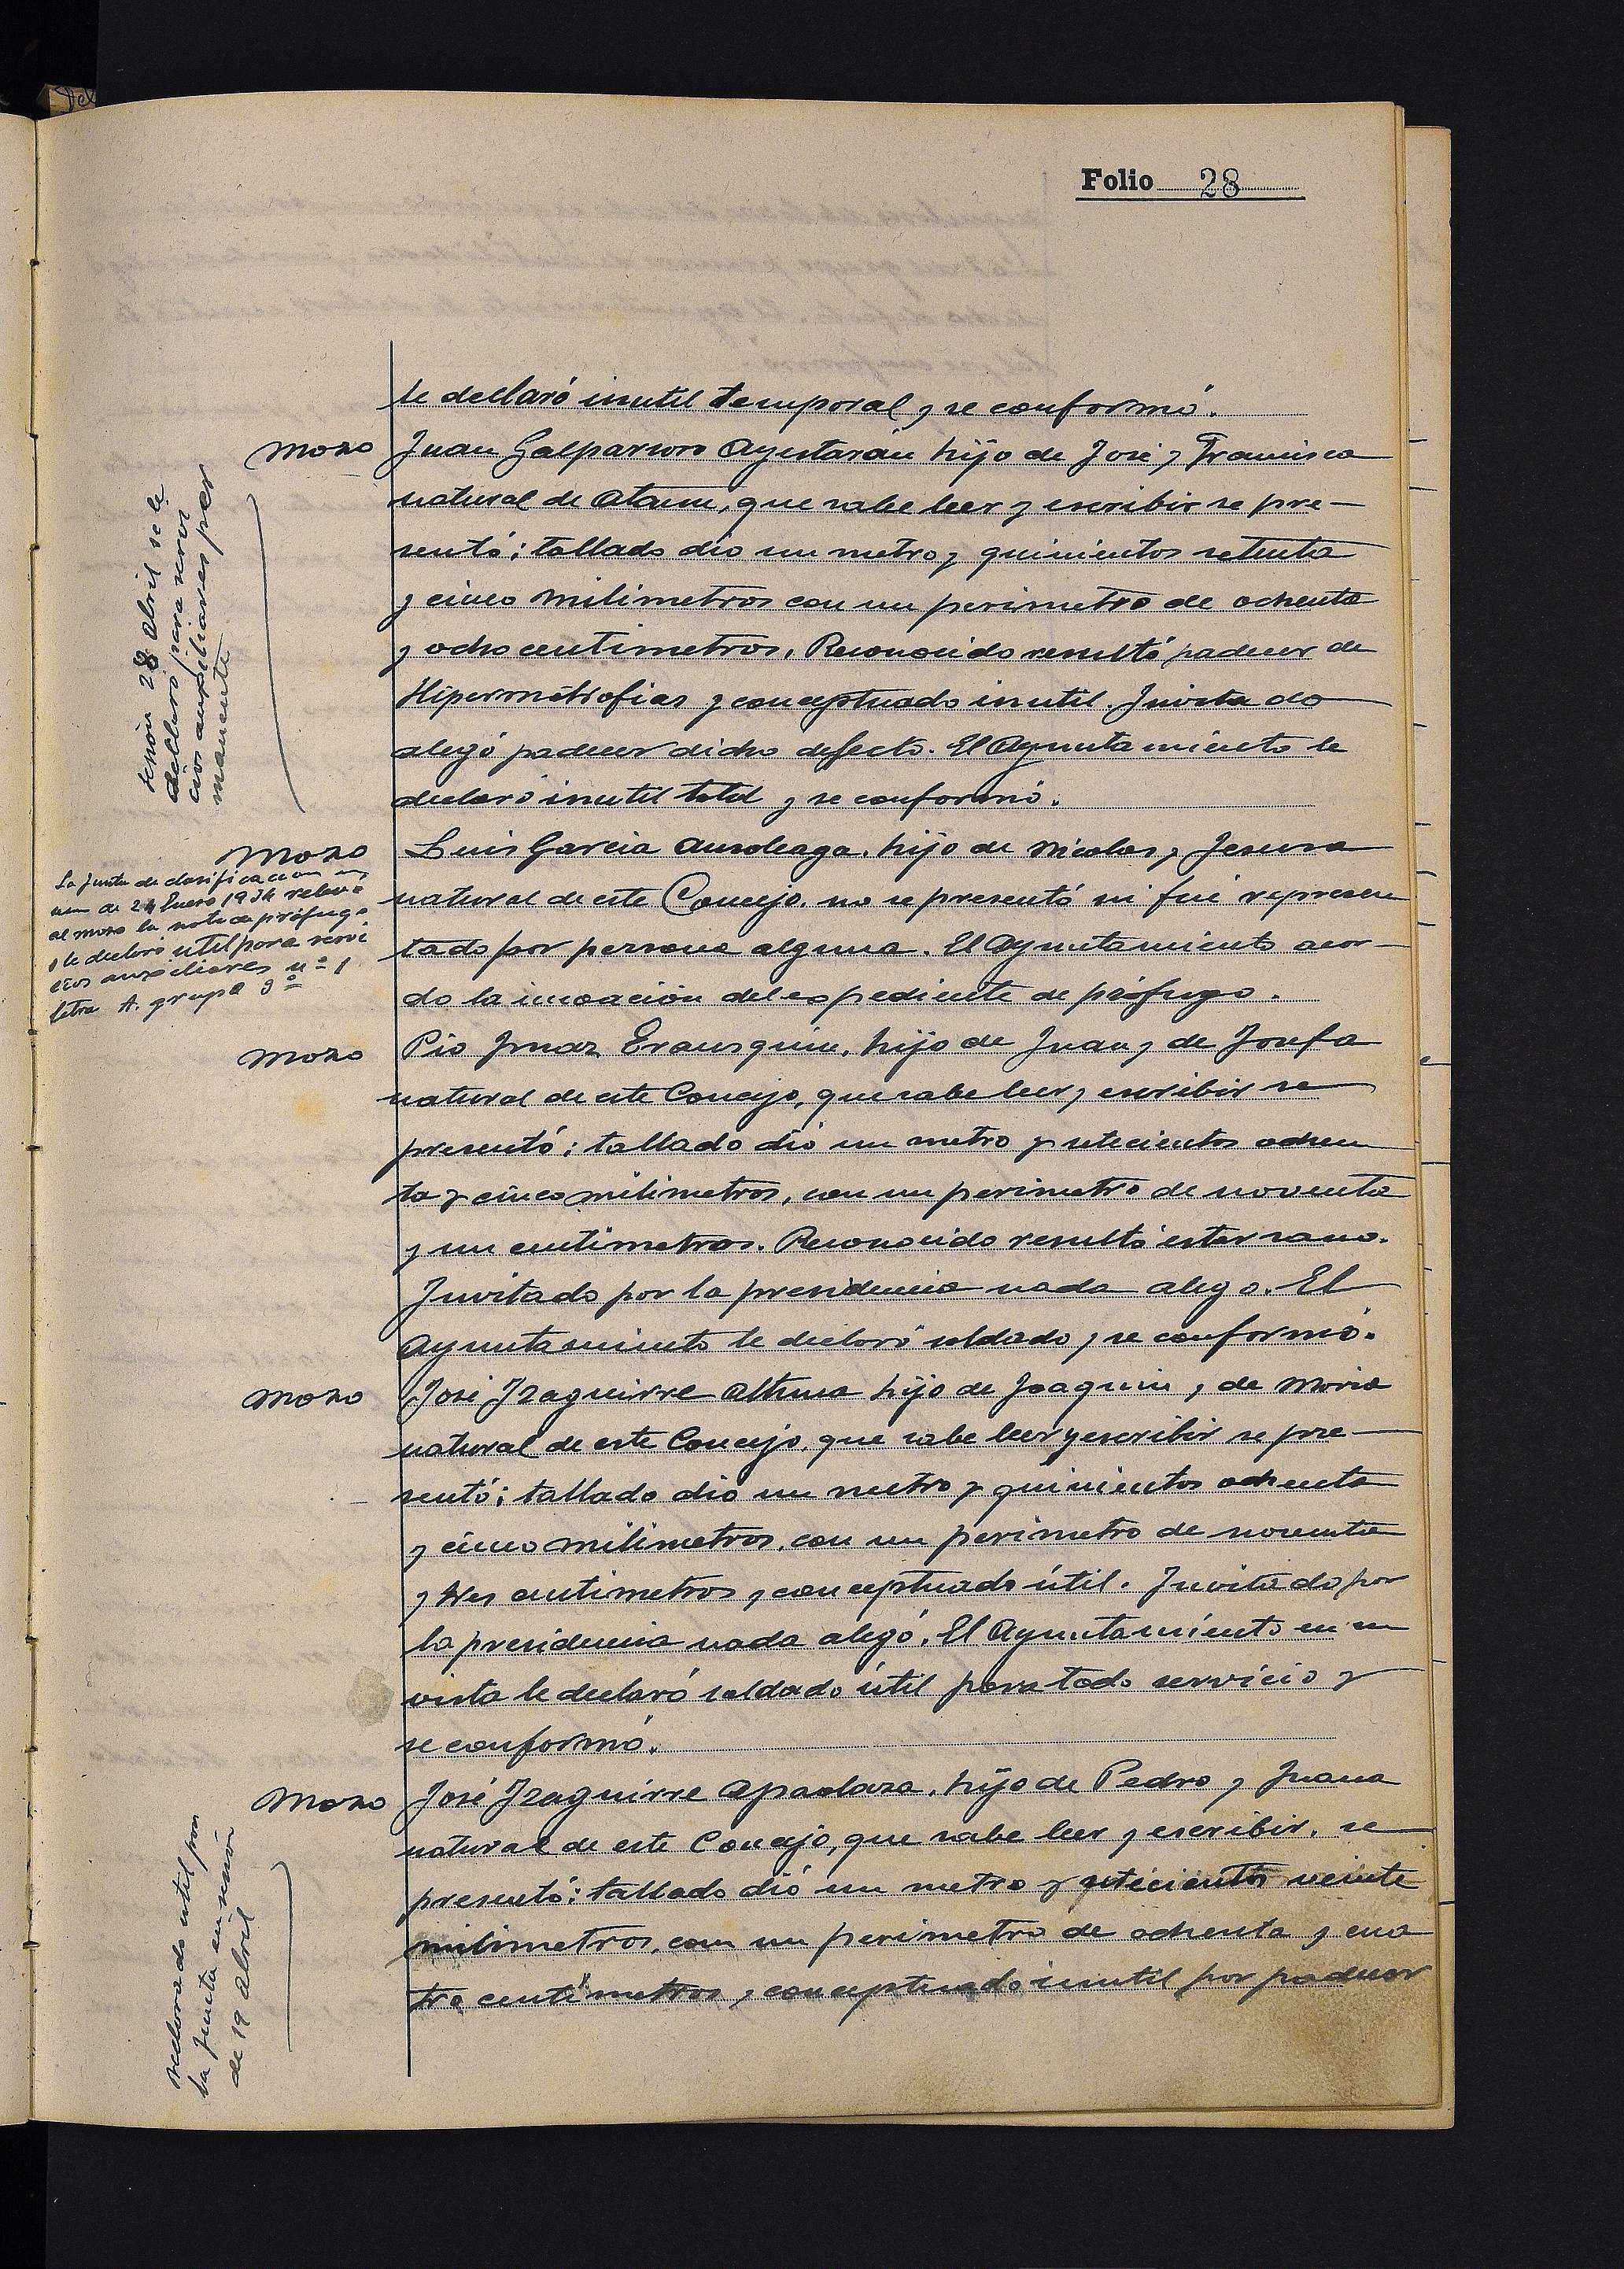 Folio 28
le declaró inutil temporal y se conformó.
Mozo
Juan Galparsoro Ayestarán hijo de José y Francisca
natural de Ataun, que sabe leer y escribir se pre-
sentó; tallado dio un metro y quinientos setenta
y cinco milimetros con un perimetro de ochenta
y ocho centimetros. Reconocido resultó padecer de
Hipermetrofias y conceptuado inutil. Invitado
alegó padecer dicho defecto. El Ayuntamiento le
declaró inutil total y se conformó.
sesión 28 Abril se le
declaró para servi
cios auxiliares per
manente
Mozo
Luis Garcia Auroleaga, hijo de Nicolas y Jesusa
natural de este Concejo, no se presentó ni fué represen
tado por persona alguna. El Ayuntamiento acor-
do la incoación del expediente de prófugo.
La Junta de clasificacion en
sesion de 24 Enero 1934 relevo
al mozo la nota de prófugo
y le declaró util para servi
cios auxiliares nº 1
letra A. grupo 3º
Mozo
Pio Imaz Erausquin, hijo de Juan y de Josefa
natural de este Concejo, que sabe leer y escribir se
presentó; tallado dió un metro y setecientos ochen
ta y cinco milimetros, con un perimetro de noventa
y un centimetros. Reconocido resultó estar sano.
Invitado por la presidencia nada alego. El
Ayuntamiento le declaró soldado y se conformó.
Mozo
José Izaguirre Altuna hijo de Joaquin y de Maria
natural de este Concejo, que sabe leer y escribir se pre-
sentó; tallado dió un metro y quinientos ochenta
y cinco milimetros, con un perimetro de noventa
y tres centimetros y conceptuado útil. Invitado por
la presidencia nada alegó. El Ayuntamiento en su
vista le declaró soldado útil para todo servicio y
se conformó.
Mozo
José Izaguirre Apaolaza, hijo de Pedro y Juana
natural de este Concejo, que sabe leer y escribir, se
presentó; tallado dió un metro y seteciento veinte
milimetros, con un perimetro de ochenta y cua
tro centimetros y conceptuado inutil por padecer
declarado util por
la Junta en sesión
de 19 Abril